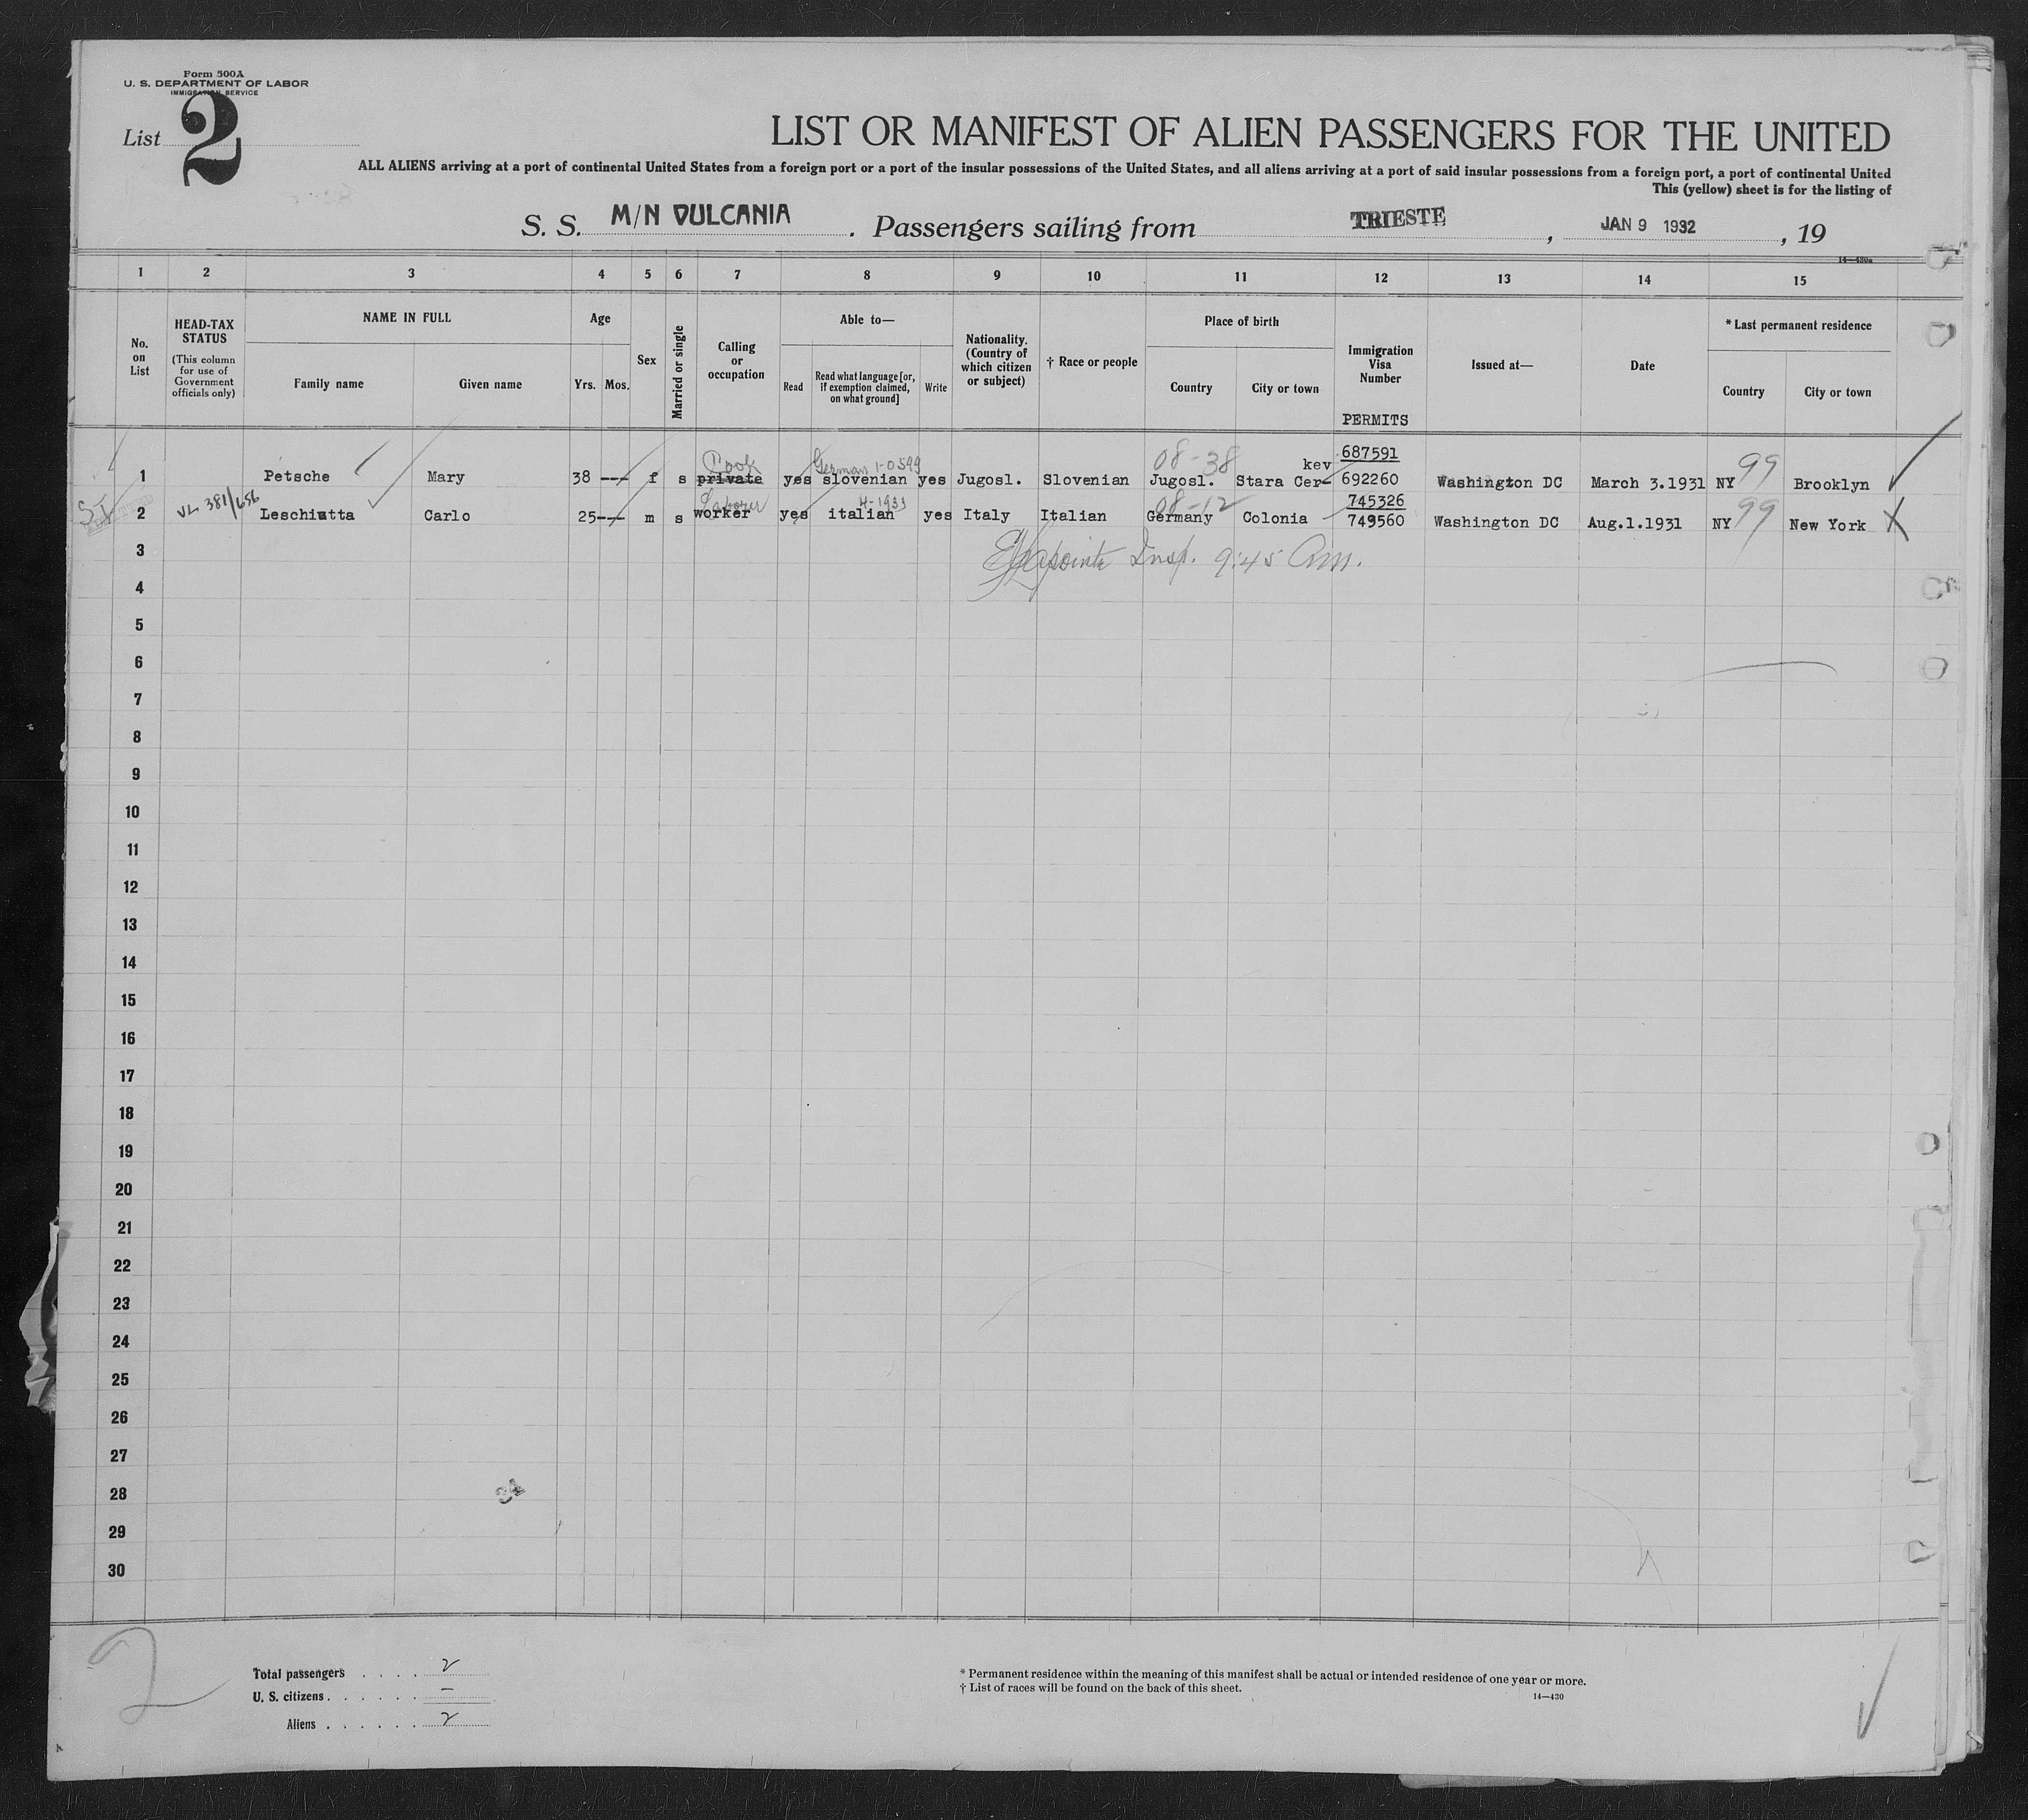 Form 500A
U. S. DEPARTMENT OF LABOR
IMMIGRATION SERVICE
List 2
LIST OR MANIFEST OF ALIEN PASSENGERS FOR THE UNITED
ALL ALIENS arriving at a port of continental United States from a foreign port or a port of the insular possessions of the United States, and all aliens arriving at a port of said insular possessions from a foreign port, a port of continental United
This (yellow) sheet is for the listing of
S. S. M/N VULCANIA. Passengers sailing from TRIESTE, JAN 9 1932, 19
14—430a
1 2 3 4 5 6 7 8 9 10 11 12 13 14 15
No. on List
HEAD-TAX STATUS (This column for use of Government officials only)
NAME IN FULL Family name Given name
Age Yrs. Mos.
Sex
Married or single
Calling or occupation
Able to— Read Read what language [or, if exemption claimed, on what ground] Write
Nationality. (Country of which citizen or subject)
† Race or people
Place of birth Country City or town
Immigration Visa Number PERMITS
Issued at—
Date
* Last permanent residence Country City or town
Cook German 1-0599 08-38 kev 687591 99
1 Petsche Mary 38 --- f s private yes slovenian yes Jugosl. Slovenian Jugosl. Stara Cer- 692260 Washington DC March 3.1931 NY Brooklyn
SI 381/656 Laborer 4-1931 08-12 745326 99
2 Leschiutta Carlo 25--- m s worker yes italian yes Italy Italian Germany Colonia 749560 Washington DC Aug.1.1931 NY New York X
3 Insp. 9:45 Am.
4
5
6
7
8
9
10
11
12
13
14
15
16
17
18
19
20
21
22
23
24
25
26
27
28
29
30
2
Total passengers . . . . 2
U. S. citizens . . . . . . —
Aliens . . . . . . 2
* Permanent residence within the meaning of this manifest shall be actual or intended residence of one year or more.
† List of races will be found on the back of this sheet.
14—430